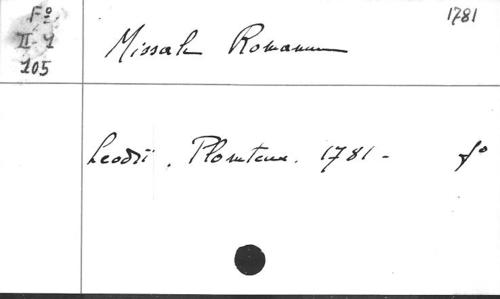 Fº
II-1
105
1781
Missale Romanum
Leodii. Plomteux. 1781 -
fº